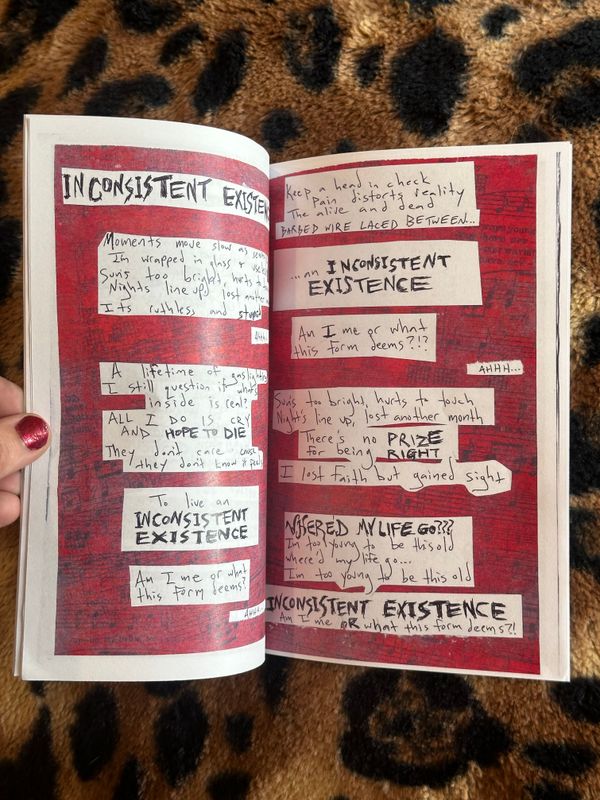 INCONSISTENT EXISTEN
Moments move slow as
Im wrapped in glass &
Suns too bright, hurts to
Nights line up, lost another
Its ruthless and stupid
Ahh
A lifetime of gaslight
I still question if what's
inside is real?
ALL I DO IS CRY
AND HOPE TO DIE
They don't care cause
they don't know it
To live an
INCONSISTENT
EXISTENCE
Am I me or what
this form deems?
AHHH...
Keep a head in check
Pain distorts reality
The alive and dead
BARBED WIRE LACED BETWEEN...
...an INCONSISTENT
EXISTENCE
Am I me or what
this form deems?!?
AHHH...
Suns too bright, hurts to touch
Night's line up, lost another month
There's no PRIZE
for being RIGHT
I lost faith but gained sight
WHERED MY LIFE GO???
Im too young to be this old
where'd my life go...
Im too young to be this old
INCONSISTENT EXISTENCE
Am I me OR what this form deems?!